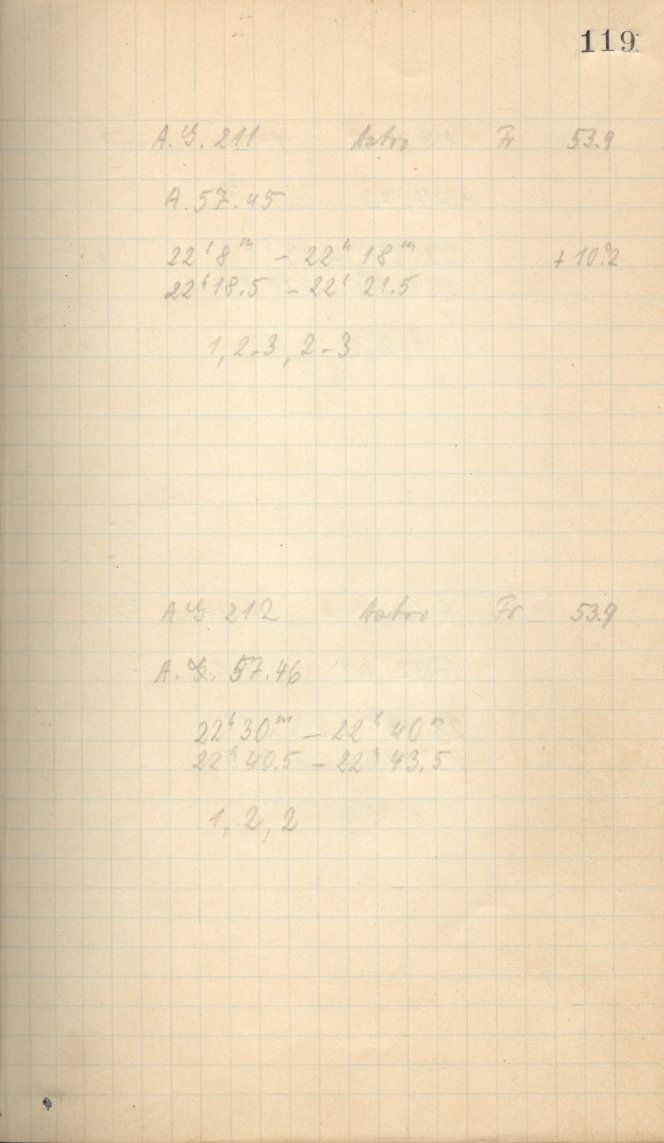 119
A. G. 211 Astro Fr 53.9
A. 57.45
22ʰ 8ᵐ – 22ʰ 18ᵐ + 10.°2
22ʰ 18.5 – 22ʰ 21.5
1, 2-3, 2-3
A G 212 Astro Fr 53.9
A. G. 57.46
22ʰ 30ᵐ – 22ʰ 40ᵐ
22ʰ 40.5 – 22ʰ 43.5
1, 2, 2